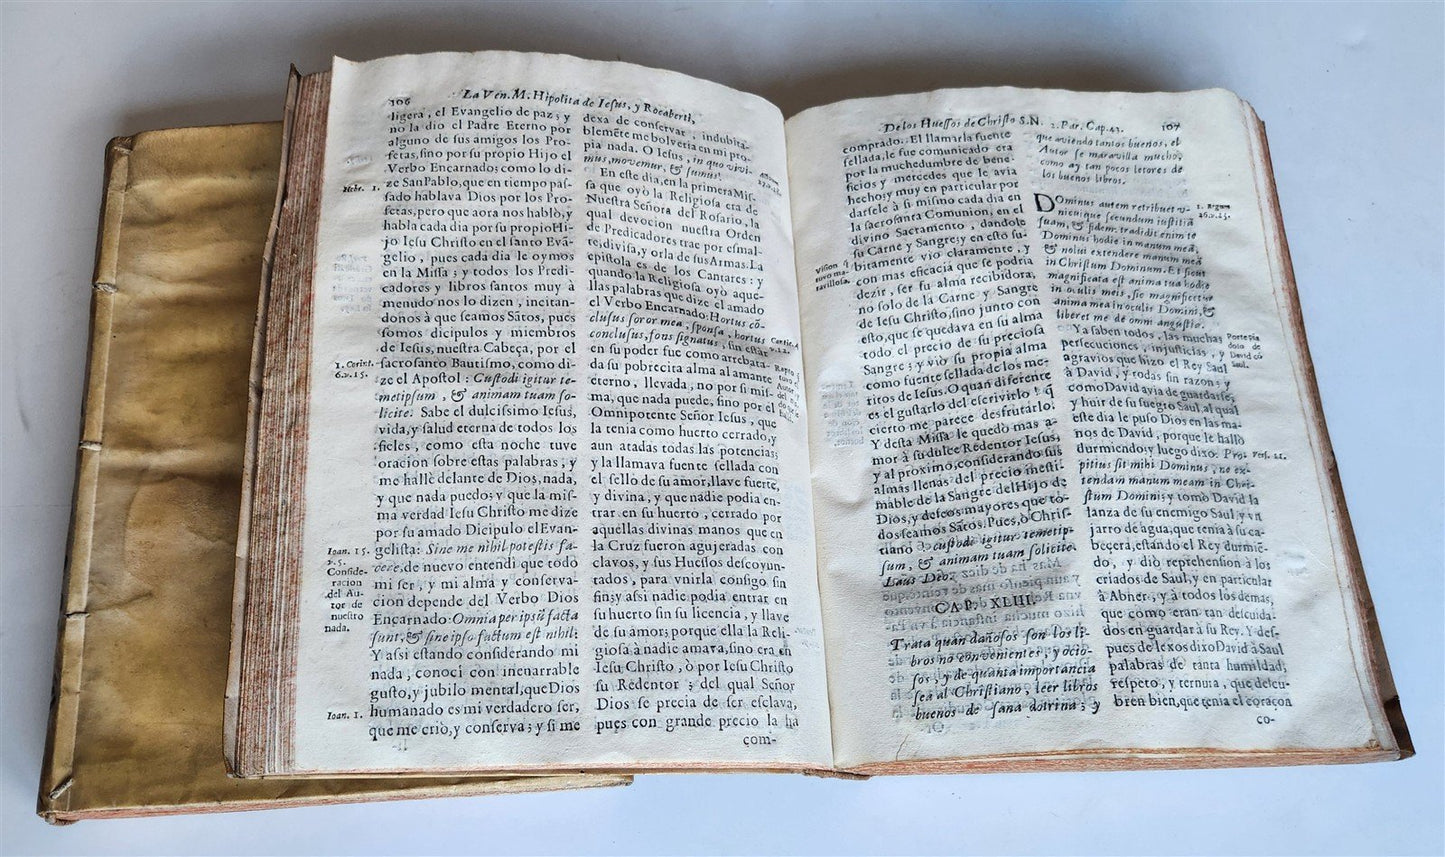 106
La Ven. M. Hipolita de Iesus, y Rocaberti,
ligera, el Evangelio de paz; y
no la dio el Padre Eterno por
alguno de sus amigos los Pro-
fetas, sino por su propio Hijo el
Verbo Encarnado; como lo di-
ze San Pablo, que en tiempo pas-
sado hablava Dios por los Pro-
fetas, pero que aora nos hablò, y
habla cada dia por su propio Hi-
jo Iesu Christo en el santo Evã-
gelio, pues cada dia le oymos
en la Missa; y todos los Predi-
cadores y libros santos muy à
menudo nos lo dizen, incitan-
donos à que seamos Sãtos, pues
somos dicipulos y miembros
de Iesus, nuestra Cabeça, por el
sacrosanto Bautismo, como di-
ze el Apostol: Custodi igitur te-
metipsum, & animam tuam so-
licite. Sabe el dulcissimo Iesus,
vida, y salud eterna de todos los
fieles, como esta noche tuve
oracion sobre estas palabras; y
me hallè delante de Dios, nada,
y que nada puedo; y que la mis-
ma verdad Iesu Christo me dize
por su amado Dicipulo el Evan-
gelista: Sine me nihil potestis fa-
cere, de nuevo entendi que todo
mi ser, y mi alma y conserva-
cion depende del Verbo Dios
Encarnado: Omnia per ipsũ facta
sunt, & sine ipso factum est nihil:
Y assi estando considerando mi
nada, conoci con inenarrable
gusto, y jubilo mental, que Dios
humanado es mi verdadero ser,
que me criò, y conserva; y si me
Hebr. 1.
1. Corint.
6.v.15.
Ioan. 15.
v.5.
Conside-
racion
del Au-
tor de
nuestro
nada.
Ioan. 1.
dexa de conservar, indubita-
blemẽte me bolveria en mi pro-
pia nada. O Iesus, in quo vivi-
mus, movemur, & sumus!
En este dia, en la primera Mis-
sa que oyò la Religiosa era de
Nuestra Señora del Rosario, la
qual devocion nuestra Orden
de Predicadores trae por esmal-
te, divisa, y orla de sus Armas. La
epistola es de los Cantares: y
quando la Religiosa oyò aque-
llas palabras que dize el amado
el Verbo Encarnado: Hortus cõ-
clusus soror mea, sponsa, hortus
conclusus, fons signatus, sin estar
en su poder fue como arrebata-
da su pobrecita alma al amante
eterno, llevada, no por si mis-
ma, que nada puede, sino por el
Omnipotente Señor Iesus, que
la tenia como huerto cerrado, y
aun atadas todas las potencias;
y la llamava fuente sellada con
el sello de su amor, llave fuerte,
y divina, y que nadie podia en-
trar en su huerto, cerrado por
aquellas divinas manos que en
la Cruz fueron agujeradas con
clavos, y sus Huessos descoyun-
tados, para vnirla consigo sin
fin; y assi nadie podia entrar en
su huerto sin su licencia, y llave
de su amor; porque ella la Reli-
giosa à nadie amava, sino era en
Iesu Christo, ò por Iesu Christo
su Redentor; del qual Señor
Dios se precia de ser esclava,
pues con grande precio la ha
com-
Cantic. 4
v.12.
De los Huessos de Christo S.N. 2. Par. Cap. 43.
107
comprado. El llamarla fuente
sellada, le fue comunicado era
por la muchedumbre de bene-
ficios y mercedes que le avia
hecho; y muy en particular por
darsele à si mismo cada dia en
la sacrosanta Comunion, en el
divino Sacramento, dandole
su Carne y Sangre; y en esto su-
bitamente vio claramente, y
con mas eficacia que se podria
dezir, ser su alma recibidora,
no solo de la Carne y Sangre
de Iesu Christo, sino junto con
esto, que se quedava en su alma
todo el precio de su preciosa
Sangre; y viò su propia alma
como fuente sellada de los me-
ritos de Iesus. O quan diferente
es el gustarlo del escrivirlo! q̃
cierto me parece desfrutarlo.
Y desta Missa le quedò mas a-
mor à su dulce Redentor Iesus,
y al proximo, considerando sus
almas llenas del precio inesti-
mable de la Sangre del Hijo de
Dios, y deseos mayores que to-
dos seamos Sãtos. Pues, ò Chris-
tiano custodi igitur temetip-
sum, & animam tuam solicite.
Laus Deo.
CAP. XLIII.
Trata quan dañosos son los li-
bros no convenientes, y ocio-
sos, y de quanta importancia
sea al Christiano, leer libros
buenos de sana dotrina; y
Vision q̃
tuvo ma-
ravillosa.
que aviendo tantos buenos, el
Autor se maravilla mucho,
como ay tan pocos letores de
los buenos libros.
Dominus autem retribuet v-
nicuique secundum iustitiã
suam, & fidem: tradidit enim te
Dominus hodie in manum meã,
& nolui extendere manum meã
in Christum Dominum. Et sicut
magnificata est anima tua hodie
in oculis meis, sic magnificetur
anima mea in oculis Domini, &
liberet me de omni angustia.
Ya saben todos, las muchas
persecuciones, injusticias, y
agravios que hizo el Rey Saul
à David, y todas sin razon; y
como David avia de guardarse,
y huir de su suegro Saul, al qual
este dia le puso Dios en las ma-
nos de David, porque le hallò
durmiendo; y luego dixo: Pro-
pitius sit mihi Dominus, ne ex-
tendam manum meam in Chri-
stum Domini; y tomò David la
lanza de su enemigo Saul y vn
jarro de agua, que tenia à su ca-
becera, estãndo el Rey durmiẽ-
do, y diò reprehension à los
criados de Saul, y en particular
à Abner, y à todos los demàs,
que como eran tan descuida-
dos en guardar à su Rey. Y des-
pues de lexos dixo David à Saul
palabras de tanta humildad,
respeto, y ternura, que descu-
bren bien, que tenia el coraçon
co-
1. Regum
26.v.23.
David cõ
Saul.
vers. 11.